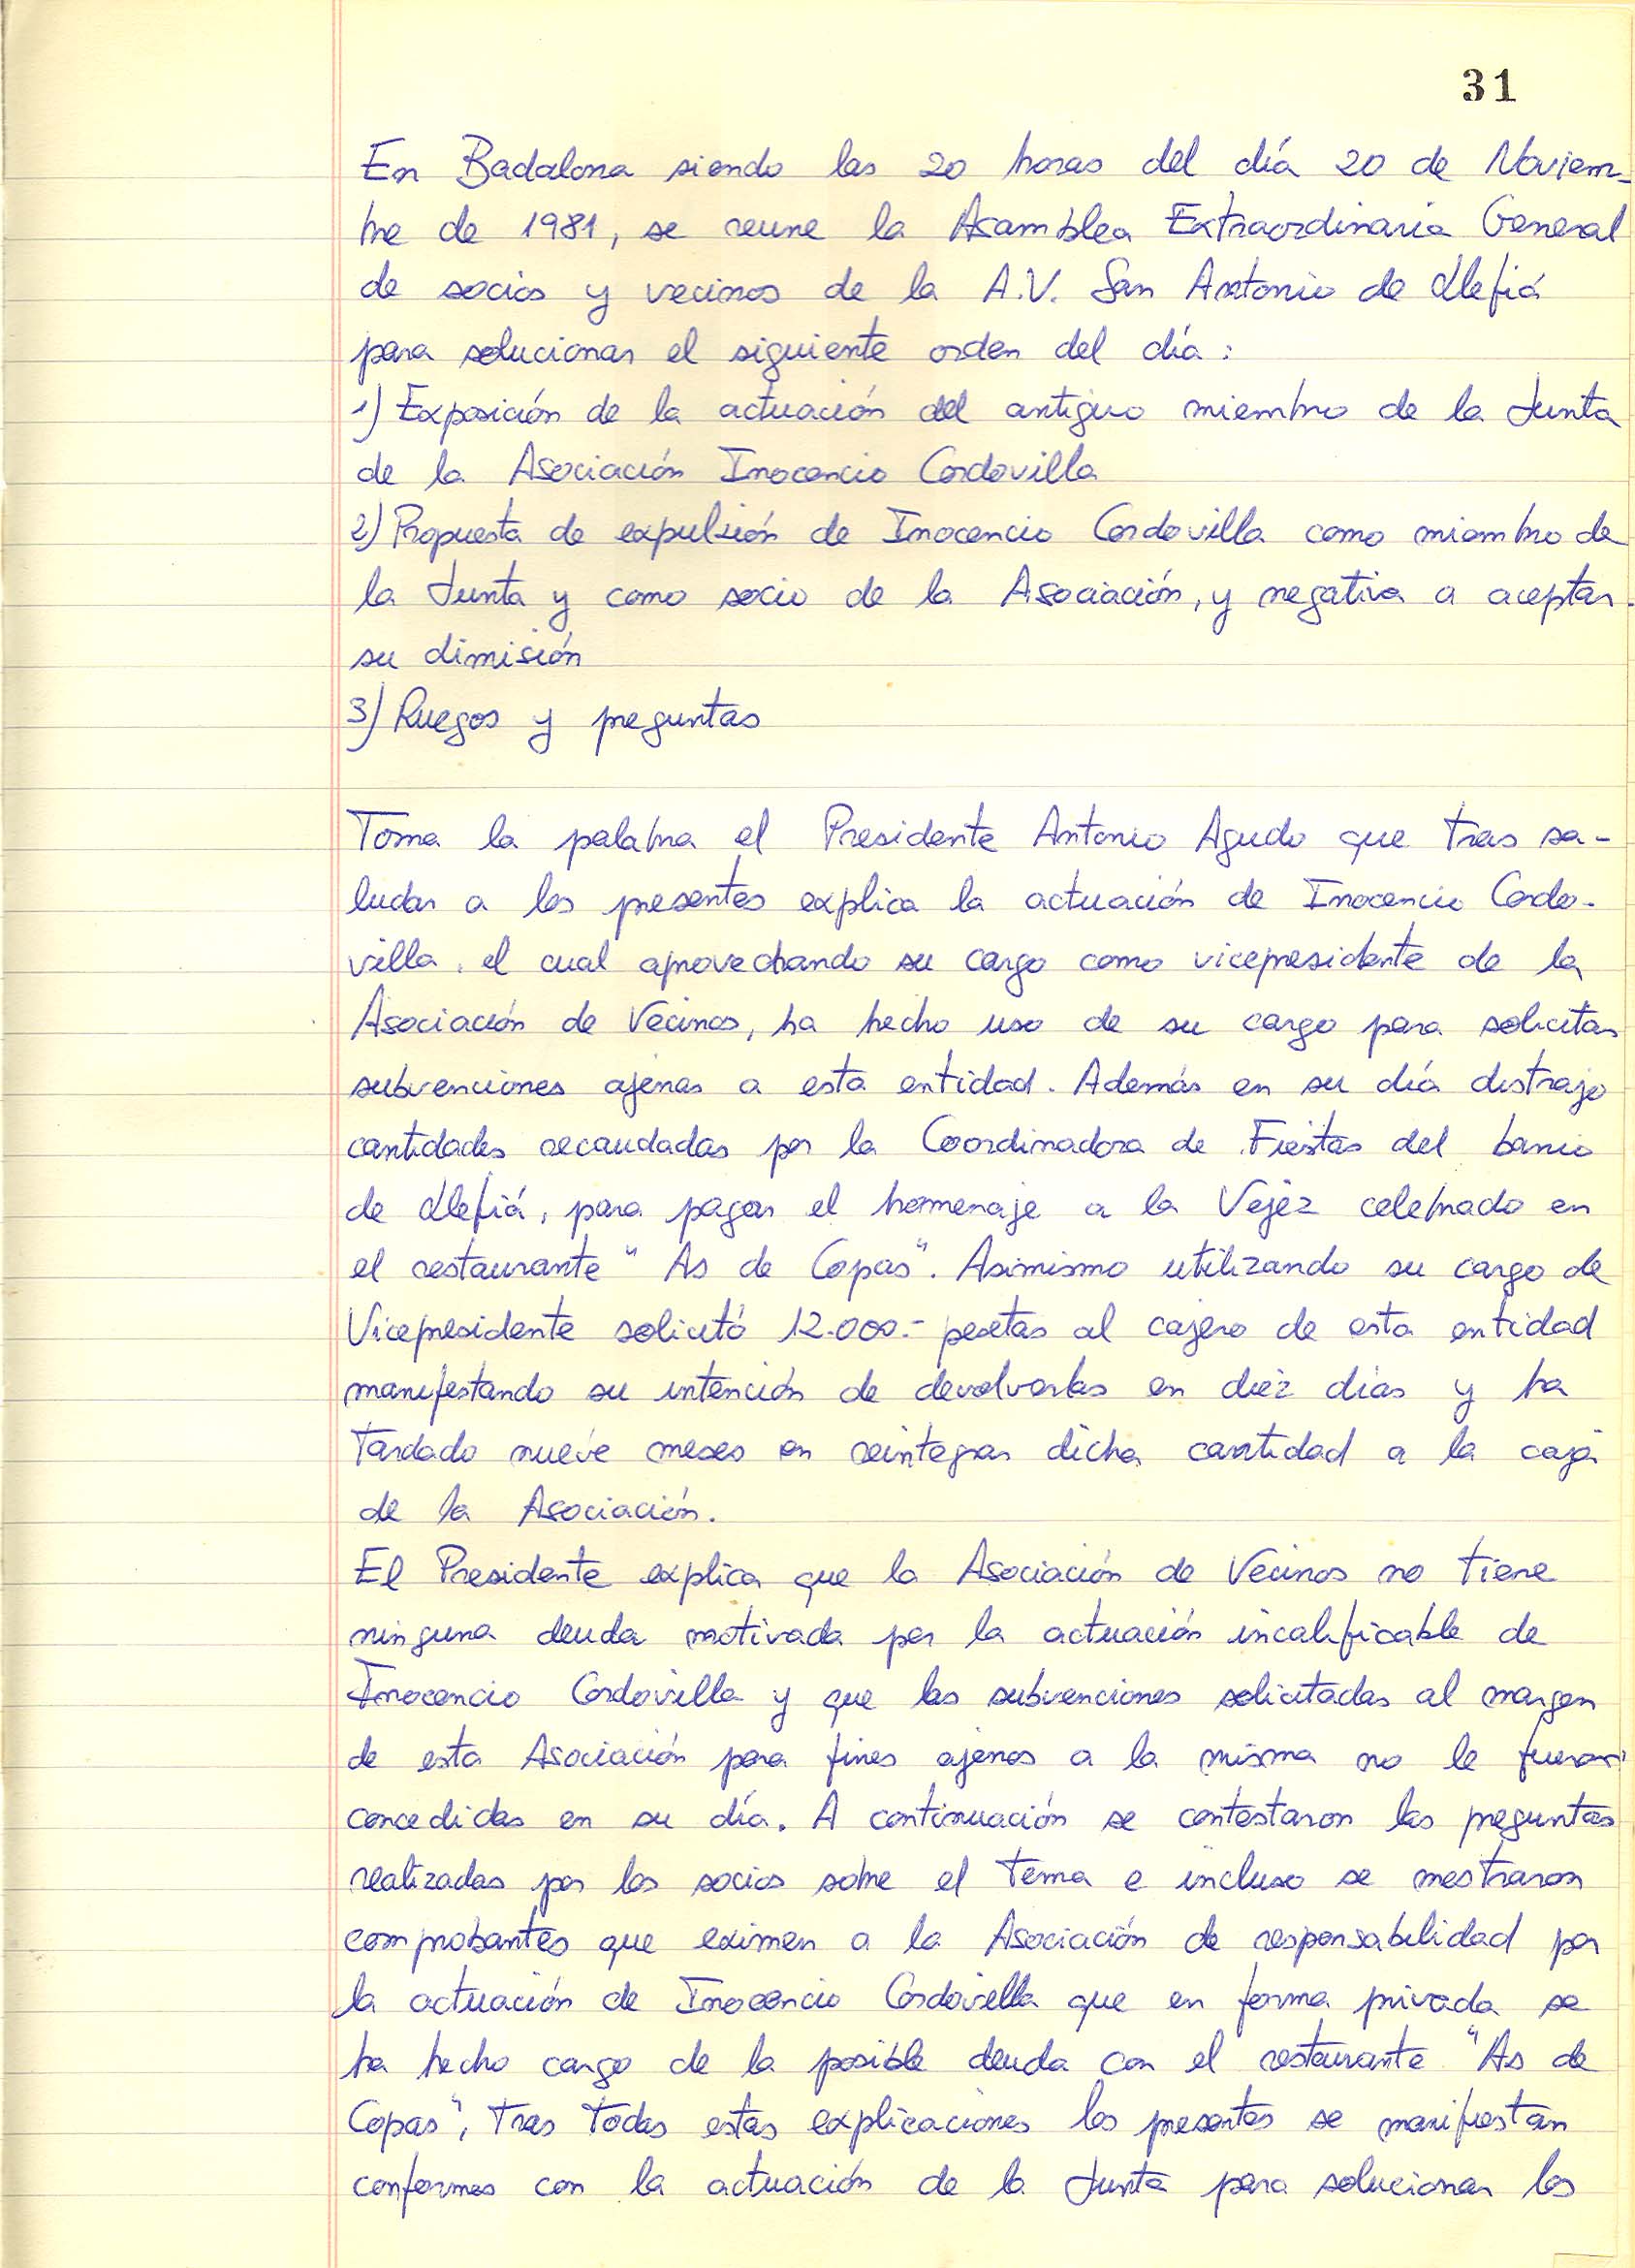 31
En Badalona siendo las 20 horas del día 20 de Noviem-
bre de 1981, se reune la Asamblea Extraordinaria General
de socios y vecinos de la A.V. San Antonio de Llefiá
para solucionar el siguiente orden del día:
1) Exposición de la actuación del antiguo miembro de la Junta
de la Asociación Inocencio Cordovilla
2) Propuesta de expulsión de Inocencio Cordovilla como miembro de
la Junta y como socio de la Asociación, y negativa a aceptar
su dimisión
3) Ruegos y preguntas
Toma la palabra el Presidente Antonio Agudo que tras sa-
ludar a los presentes explica la actuación de Inocencio Cordo-
villa, el cual aprovechando su cargo como vicepresidente de la
Asociación de Vecinos, ha hecho uso de su cargo para solicitar
subvenciones ajenas a esta entidad. Además en su día distrajo
cantidades recaudadas por la Coordinadora de Fiestas del barrio
de Llefiá, para pagar el homenaje a la Vejez celebrado en
el restaurante "As de Copas". Asimismo utilizando su cargo de
Vicepresidente solicitó 12.000.- pesetas al cajero de esta entidad
manifestando su intención de devolverlas en diez días y ha
tardado nueve meses en reintegrar dicha cantidad a la caja
de la Asociación.
El Presidente explica que la Asociación de Vecinos no tiene
ninguna deuda motivada por la actuación incalificable de
Inocencio Cordovilla y que las subvenciones solicitadas al margen
de esta Asociación para fines ajenos a la misma no le fueron
concedidas en su día. A continuación se contestaron las preguntas
realizadas por los socios sobre el tema e incluso se mostraron
comprobantes que eximen a la Asociación de responsabilidad por
la actuación de Inocencio Cordovilla que en forma privada se
ha hecho cargo de la posible deuda con el restaurante "As de
Copas", tras todas estas explicaciones los presentes se manifiestan
conformes con la actuación de la Junta para solucionar los